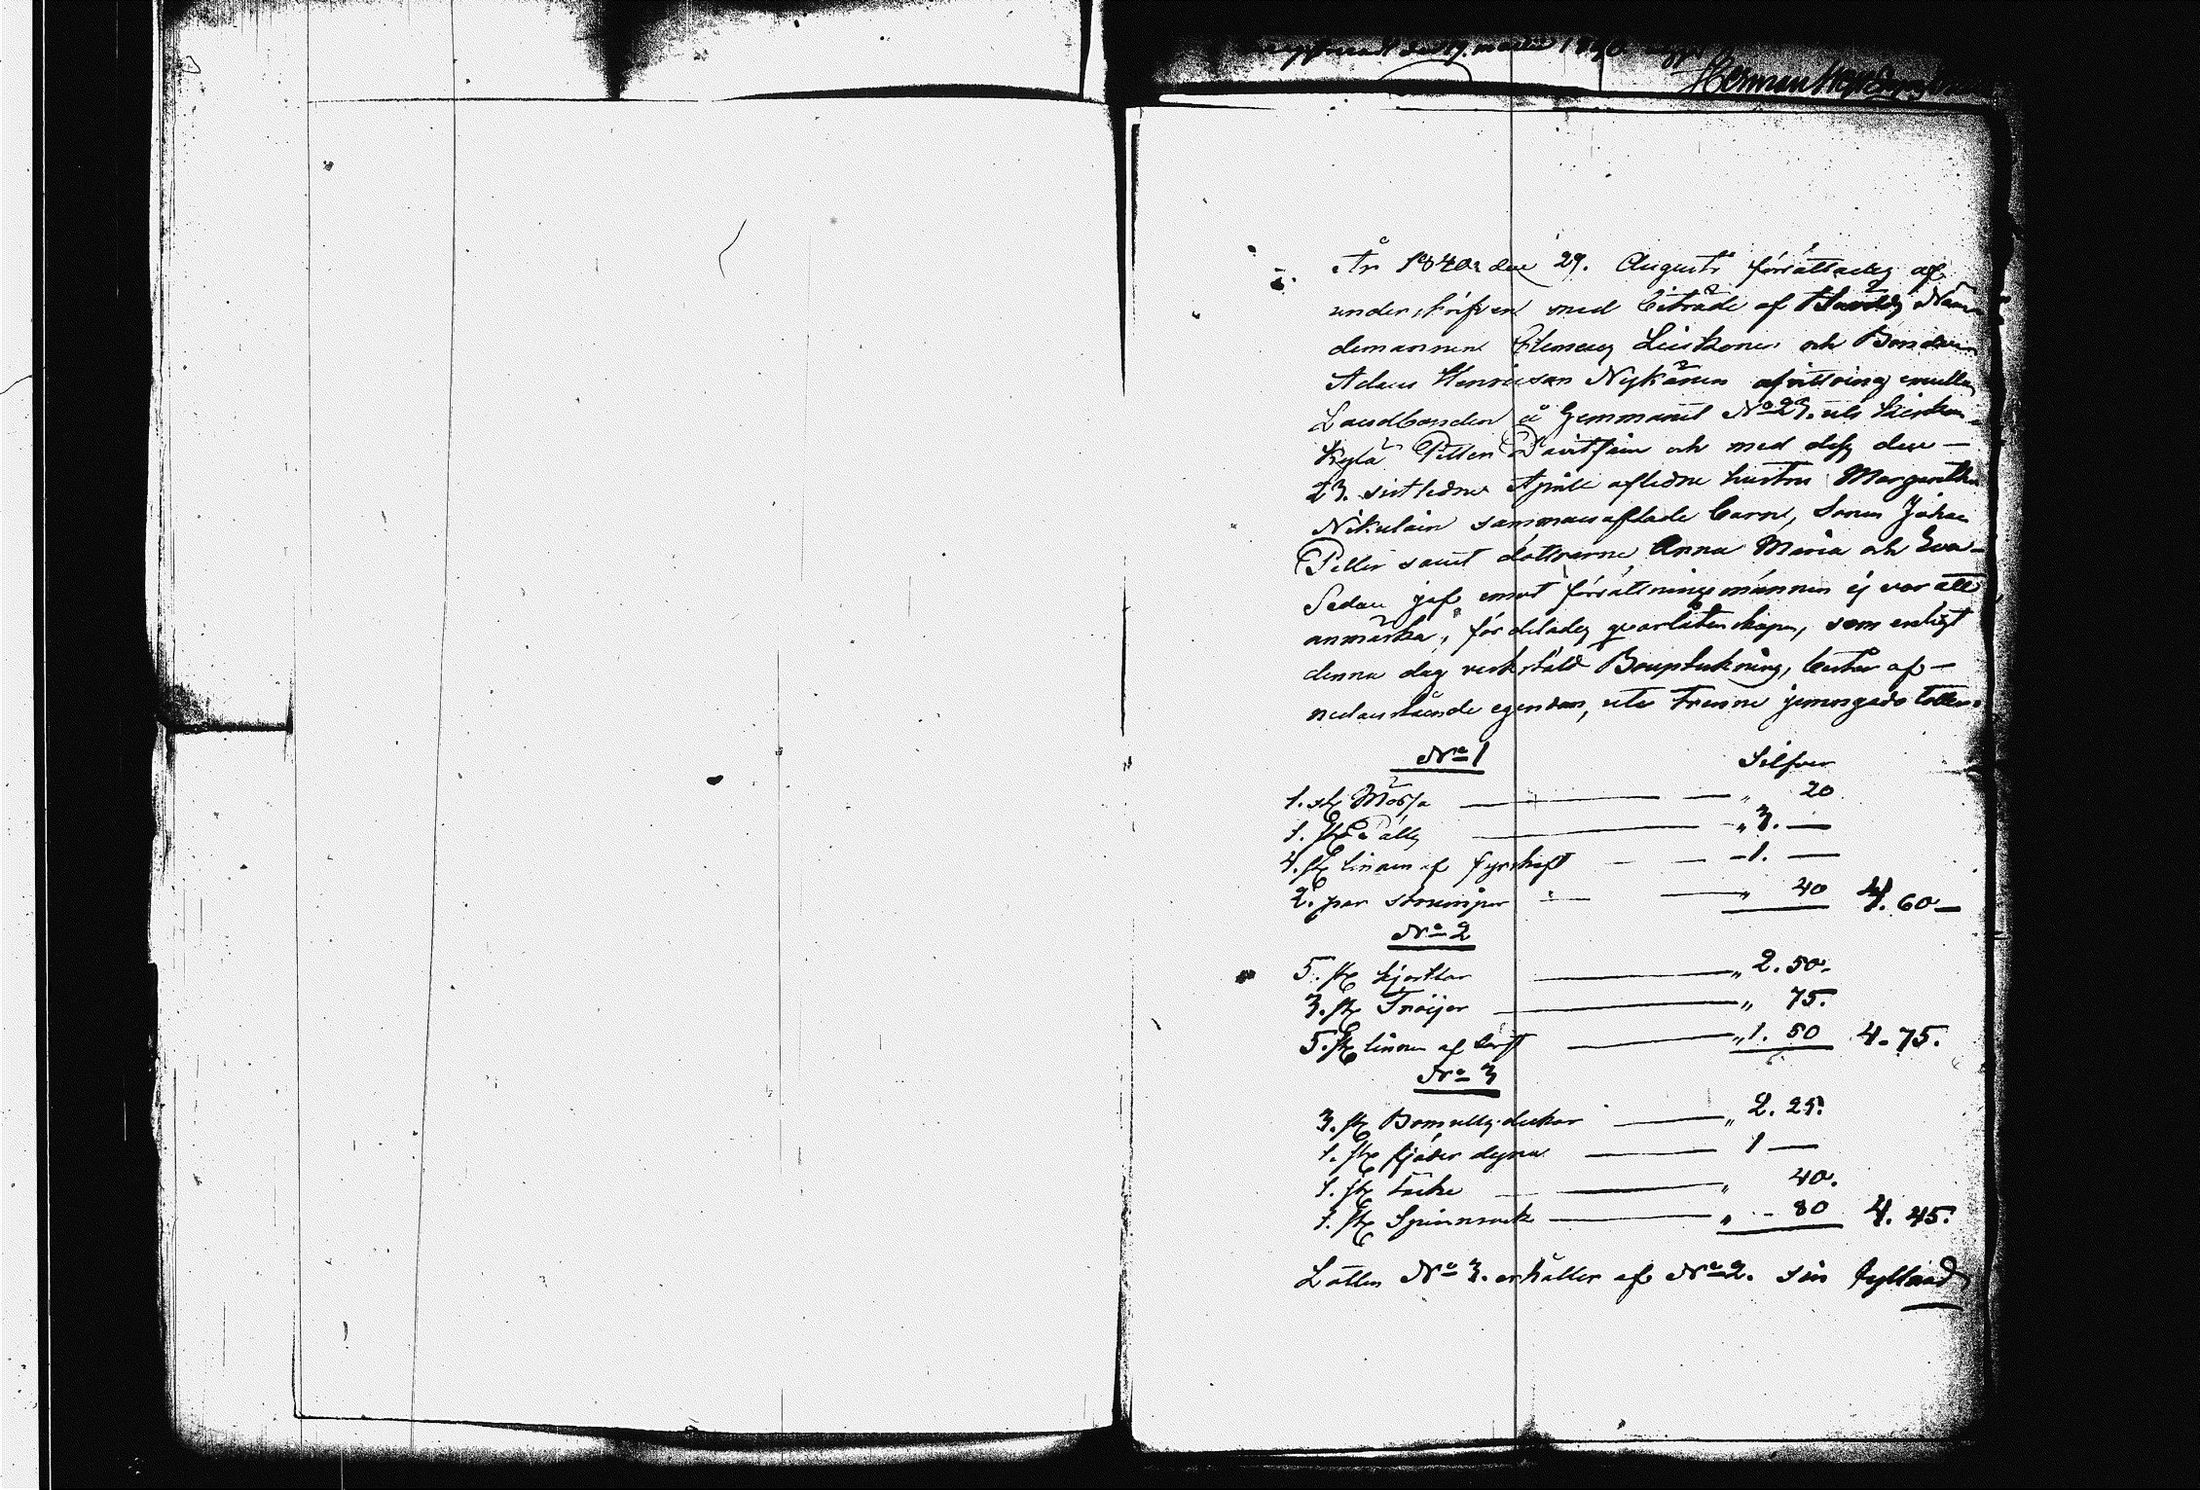 den 19. martii 18
Herman
År 1840. den 29. Augusti förrättades af
underskrifven med biträde af Näm
demannen Clemens Leiskonen och Bonden
Adam Henricsson Nykänen afvittring emellan
Landbonden å Hemmanet No 23. uti
kylä Petter Davitsain och med dess den
23. sistledne Aprill aflidne hustru Margaretha
Nikulain sammanaflade barn, Sonen Johan
Petter samt döttrarne Anna Maria och Eva
Sedan jäf emot förrättningsmännen ej var att
anmärka, fördelades qvarlåtenskapen, som enligt
denna dag verkstäld Bouptekning, består af
nedanstående egendom, uti trenne jemngoda lotter:
No 1
Silfver
1. st Mössa — " 20
1. st Päls — " 3. —
4. st linnen af fyrskaft — 1. —
2. par strumpor — " 40 4. 60 —
No 2
5. st kjortlar — " 2. 50.
3. st Tröijor — " 75.
5. st linnen af lärft — " 1. 50 4. 75.
No 3
3. st Bomulls dukar — " 2. 25.
1. st fjäder dyna — 1 —
1. st täcke — " 40.
1. st Spinnrock — " 80 4. 45.
Lotten No 3. erhåller af No 2. sin fyllnad